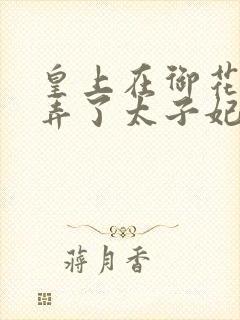 皇上在御花
弄了太子妃
蒋月香